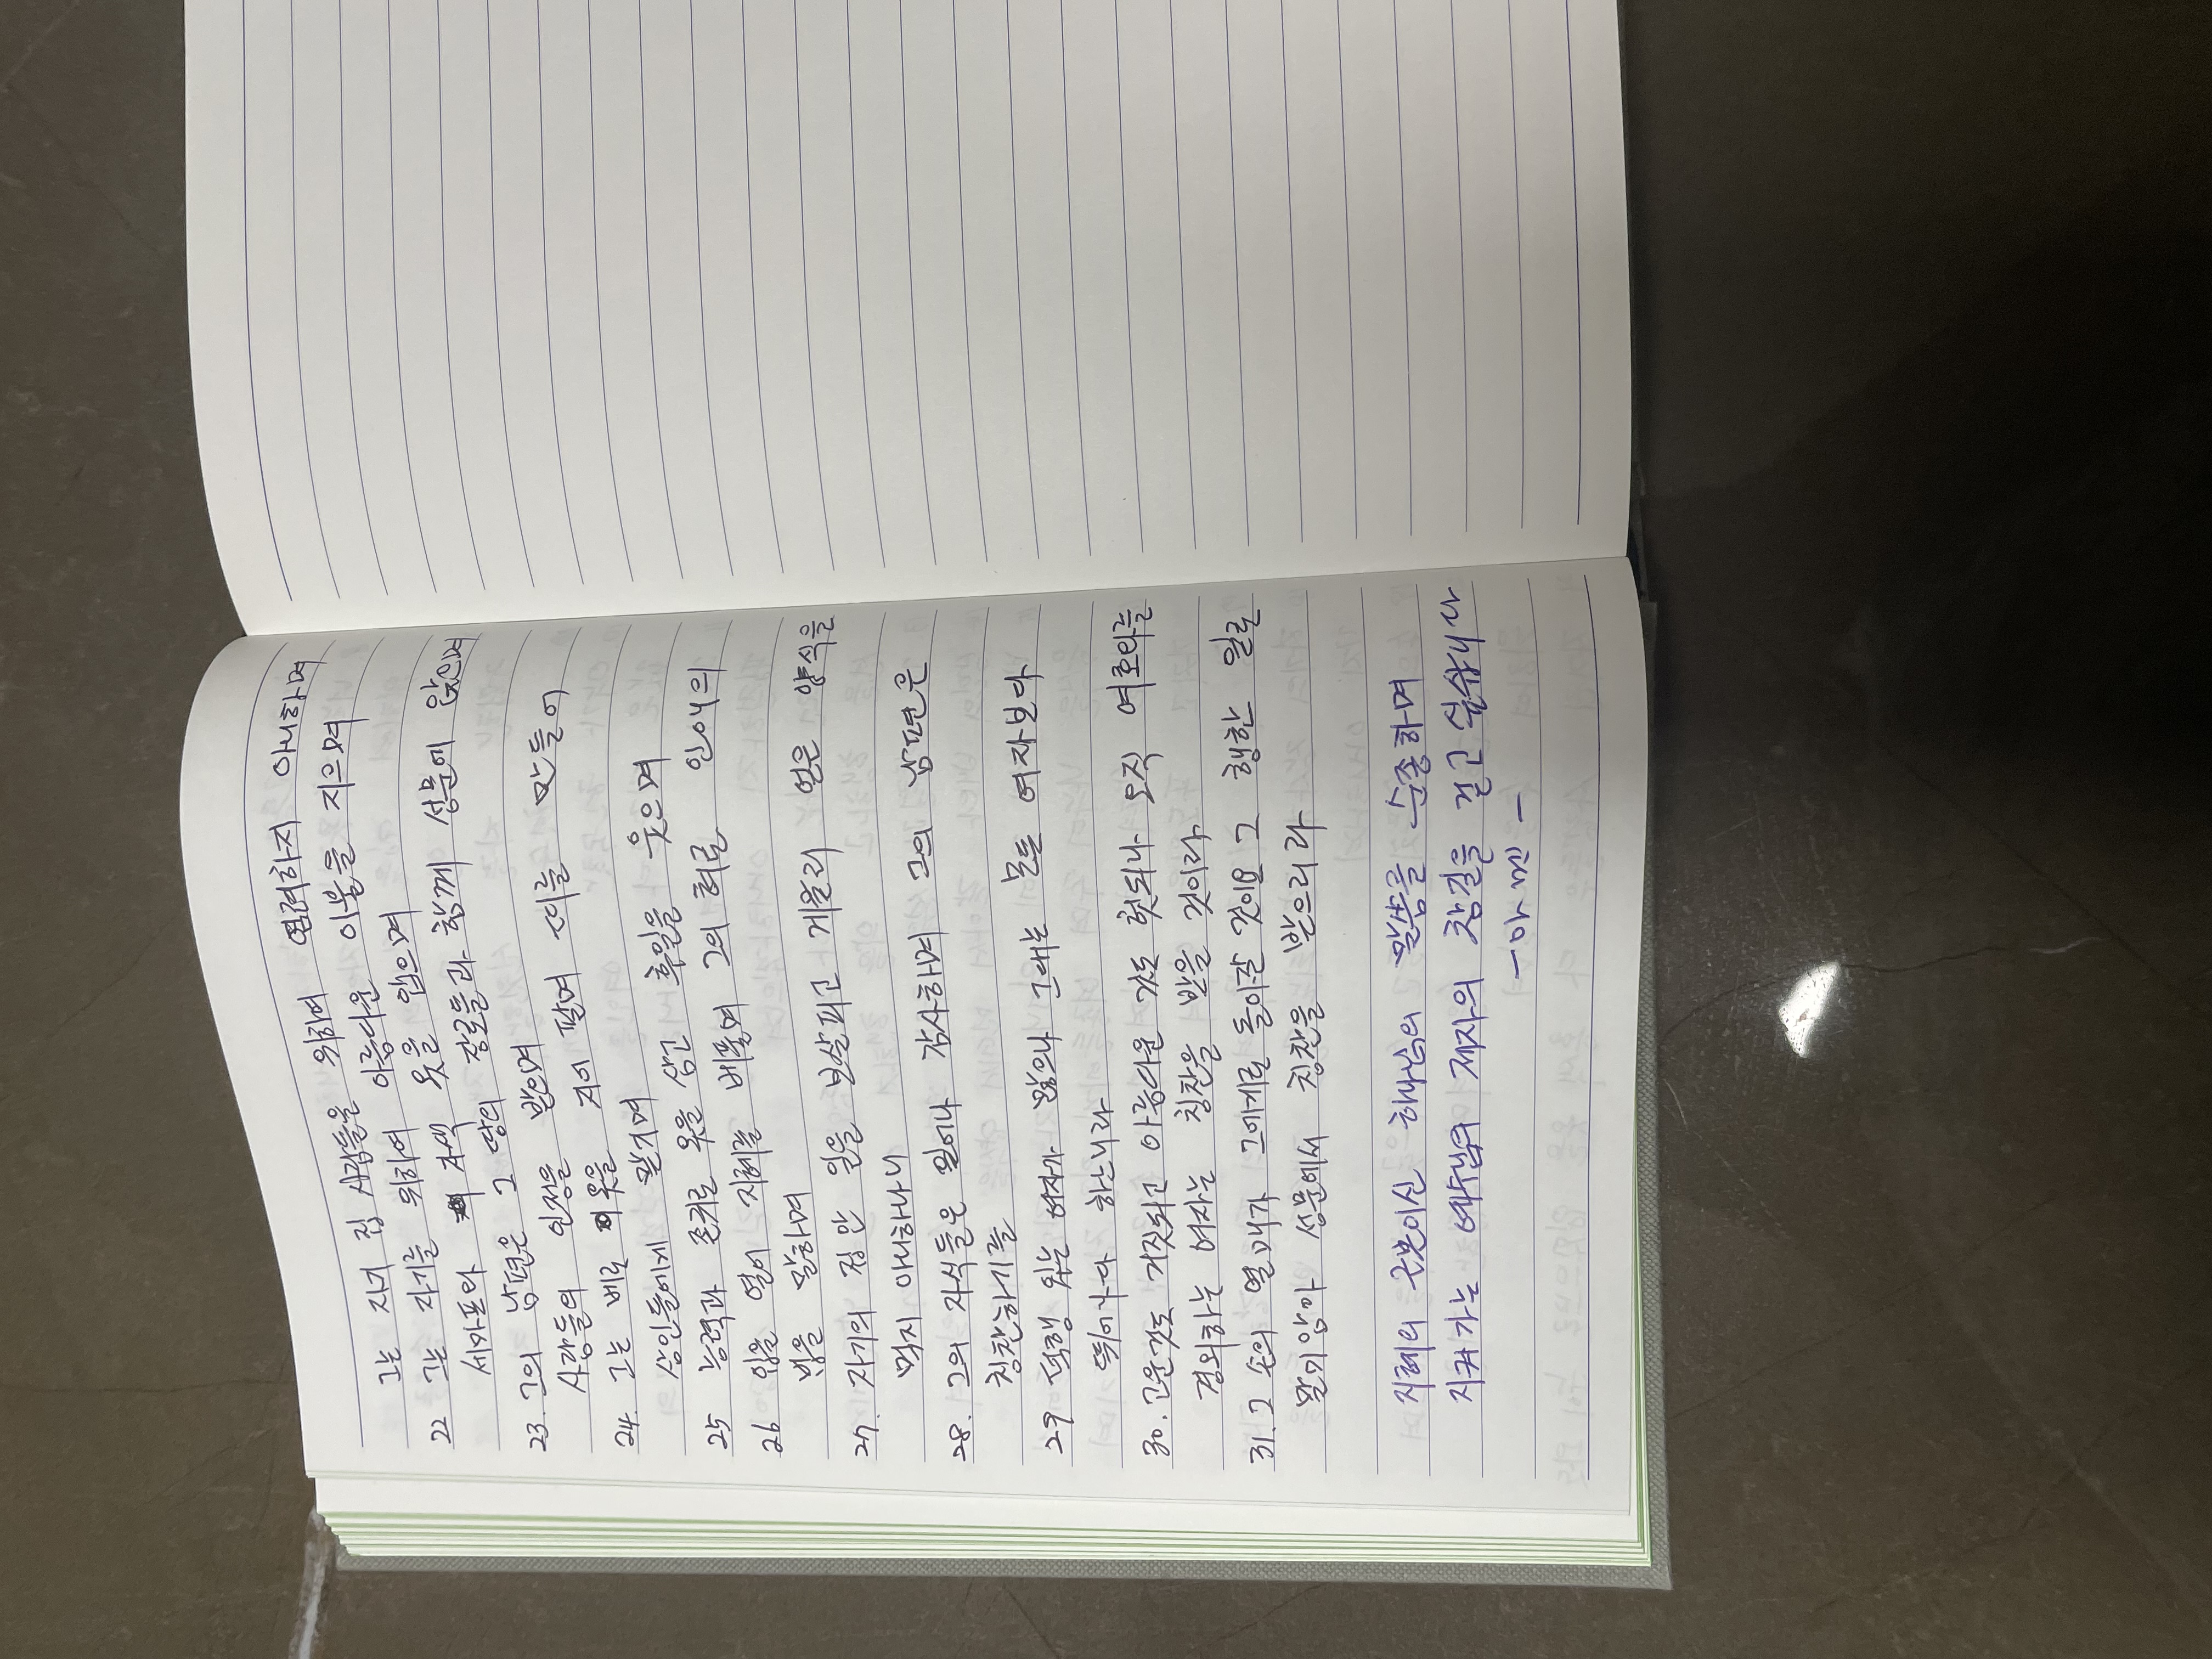 그는 자기 집 사람들을 위하여 염려하지 아니하며
22 그는 자기를 위하여 아름다운 이불을 지으며
세마포와 자색 옷을 입으며
23. 그의 남편은 그 땅의 장로들과 함께 성문에 앉으며
사람들의 인정을 받으며
24. 그는 베로 옷을 지어 팔며 띠를 만들어
상인들에게 맡기며
25 능력과 존귀로 옷을 삼고 후일을 웃으며
26 입을 열어 지혜를 베풀며 그의 혀로 인애의
법을 말하며
27. 자기의 집안 일을 보살피고 게을리 얻은 양식을
먹지 아니하나니
28. 그의 자식들은 일어나 감사하며 그의 남편은
칭찬하기를
29 덕행 있는 여자가 많으나 그대는 모든 여자보다
뛰어나다 하느니라
30. 고운것도 거짓되고 아름다운 것도 헛되나 오직 여호와를
경외하는 여자는 칭찬을 받을 것이라
31. 그 손의 열매가 그에게로 돌아갈 것이요 그 행한 일로
말미암아 성문에서 칭찬을 받으리라
지혜의 근본이신 하나님의 말씀을 순종하며
지켜가는 예수님의 제자의 참길을 걷고 싶습니다
- 아멘 -